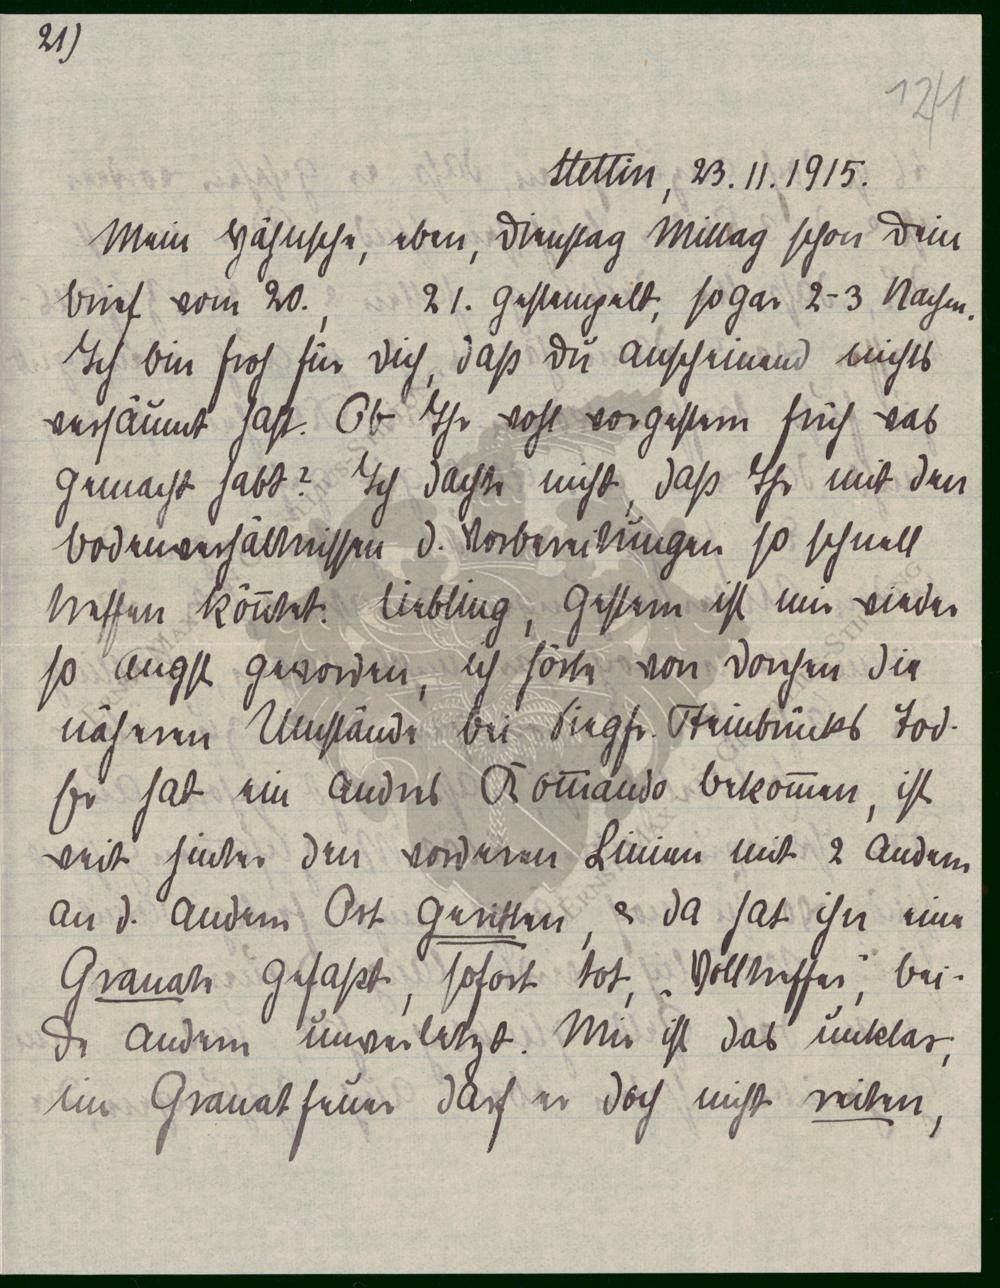 21)
12/1
Stettin, 23.11.1915.
Mein Hähnsche, eben, Dienstag Mittag schon Dein
brief vom 20., 21. gestempelt, sogar 2-3 Nachm.
Ich bin froh für Dich, daß Du anscheinend nichts
versäumt hast. Ob Ihr wohl vorgestern früh was
gemacht habt? Ich dachte nicht, daß Ihr mit den
bodenverhältnissen d. Vorbereitungen so schnell
treffen kön̅tet. Liebling, gestern ist mir wieder
so angst geworden, ich hörte von Dorchen die
näheren Umstände bei Siegfr. Steinbrücks Tod.
Er hat ein andres Kom̅ando bekom̅en, ist
weit hinter den vorderen Linien mit 2 andern
an d. andern Ort geritten, & da hat ihn eine
Granate gefaßt, sofort tot, „Volltreffer", bei-
de andern unverletzt. Mir ist das unklar,
im Granatfeuer darf er doch nicht reiten,